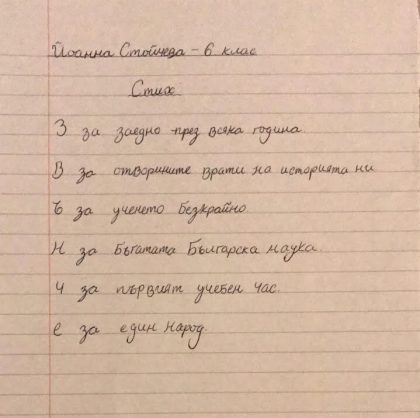 Йоанна Стойчева - 6 клас
Стих
З за заедно през всяка година.
В за отворините врати на историята ни
Ъ за ученето безкрайно.
Н за бъгатата Българска наука.
Ч за първият учебен час.
е за един народ.